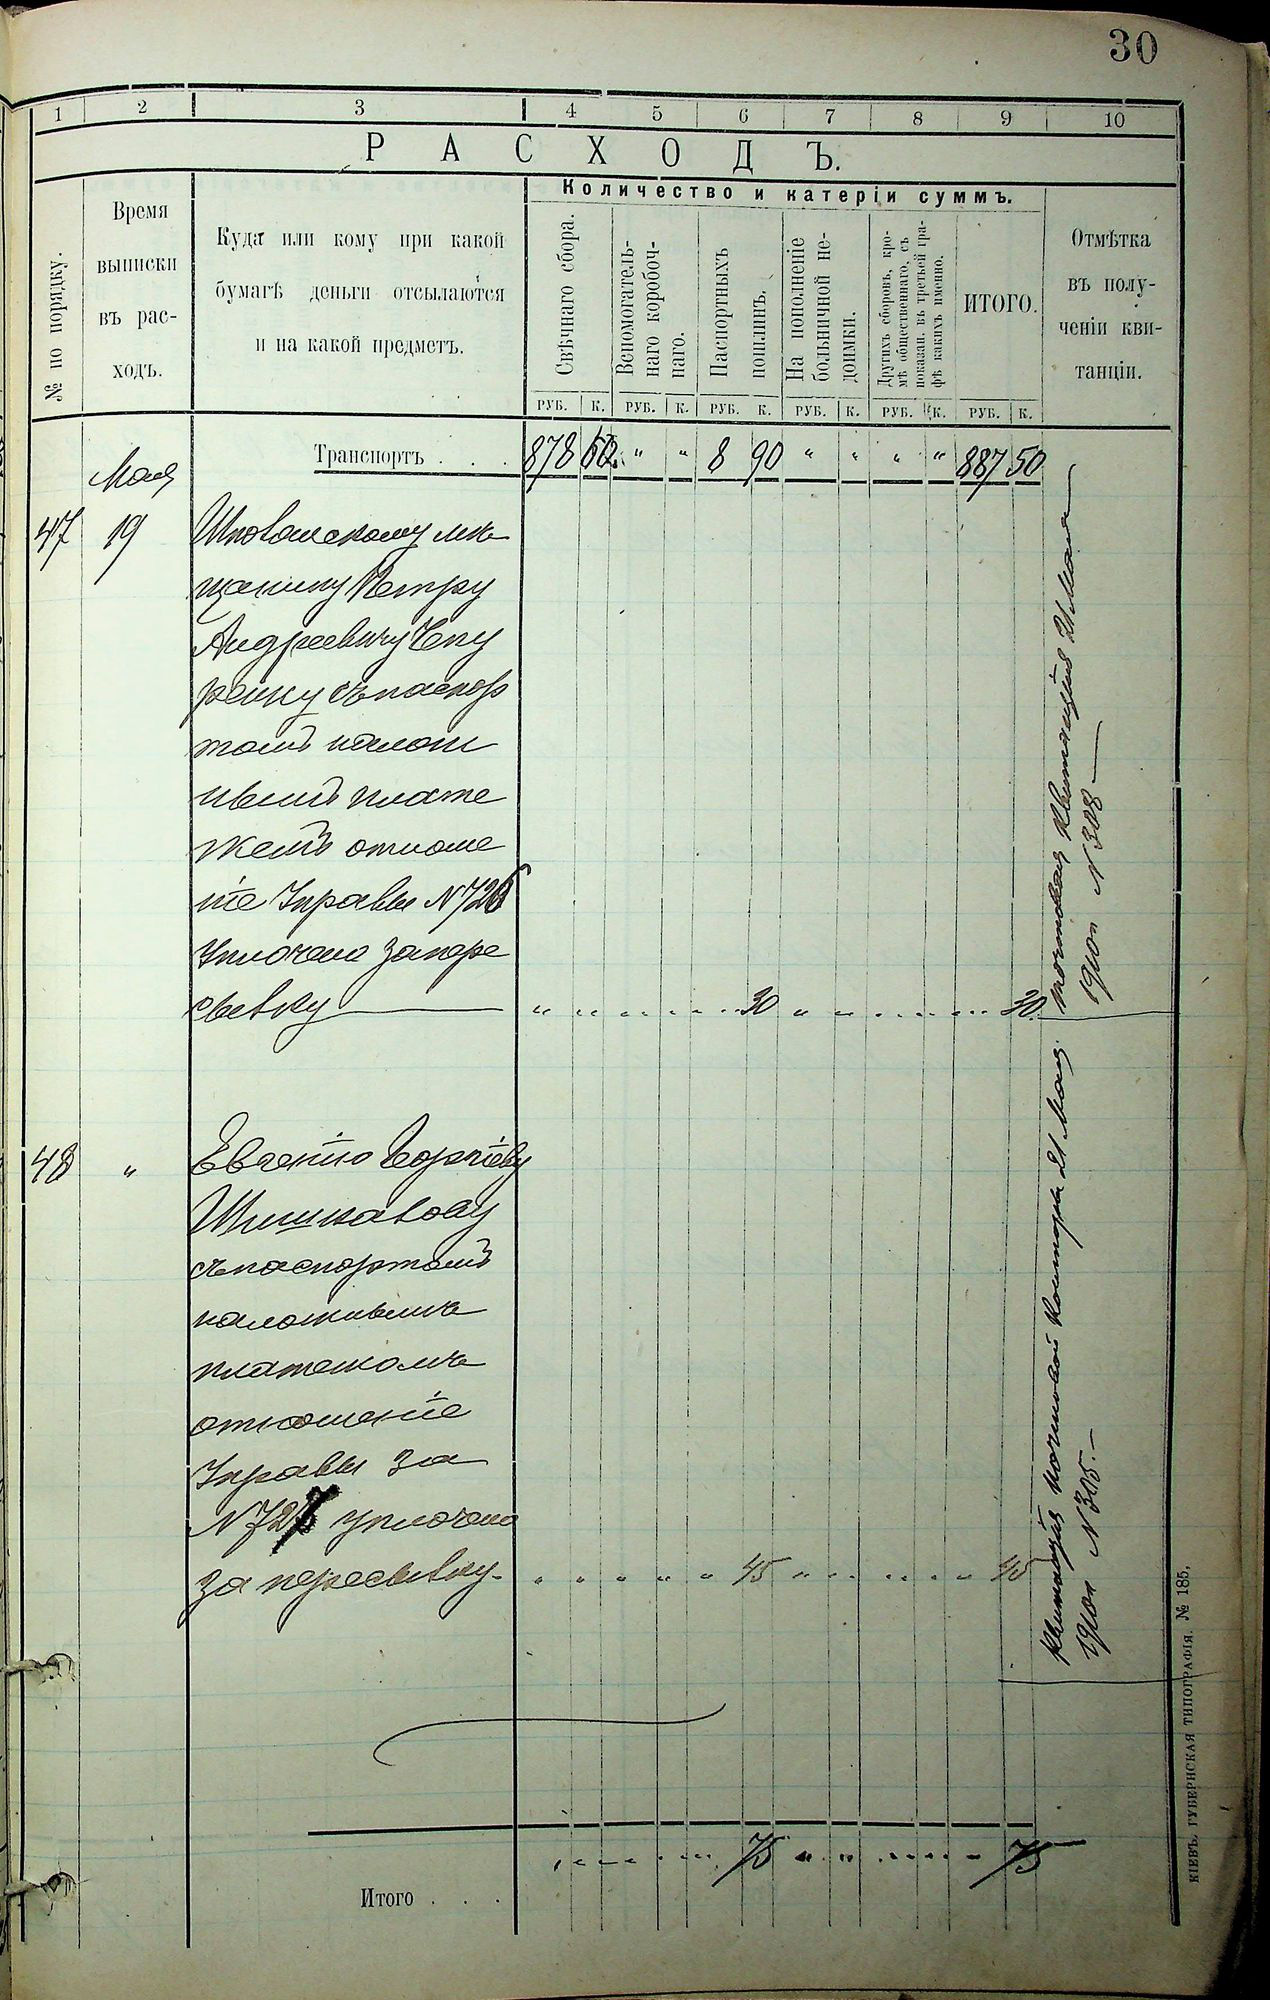 30
1 2 3 4 5 6 7 8 9 10
РАСХОДЪ.
№ по порядку.
Время
выписки
въ рас-
ходъ.
Куда или кому при какой
бумагѣ деньги отсылаются
и на какой предметъ.
Количество и катеріи суммъ.
Свѣчнаго сбора.
Вспомогатель-
наго коробоч-
наго.
Паспортныхъ
пошлинъ.
На пополненіе
больничной не-
доимки.
Другихъ сборовъ, кро-
мѣ общественнаго, съ
показан. въ третьей гра-
фѣ какихъ именно.
ИТОГО.
Отмѣтка
въ полу-
ченіи кви-
танціи.
РУБ. К. РУБ. К. РУБ. К. РУБ. К. РУБ. К. РУБ. К.
Транспортъ . . . 878 60 " " 8 90 " " " " 887 50
Мая
47 19
мѣ
щанину Петру
Андреевичу Чепу
ренку съ паспор
томъ налож
ннымъ плате
жемъ отноше
ніе Управы N 726
Уплочено за пере
сылку 30 30
почтовая квитанція 21 Мая
1910 N 308
48 "
Евгенію Георгіеву
Шишкавову
съ паспортомъ
наложнымъ
платежомъ
отношеніе
Управы за
N 727 уплочено
за пересылку. 45 45
Квитанція почтовой конторы 21 Мая
1910 N 305.
Итого . . . 75 75
КІЕВЪ. ГУБЕРНСКАЯ ТИПОГРАФІЯ. № 185.